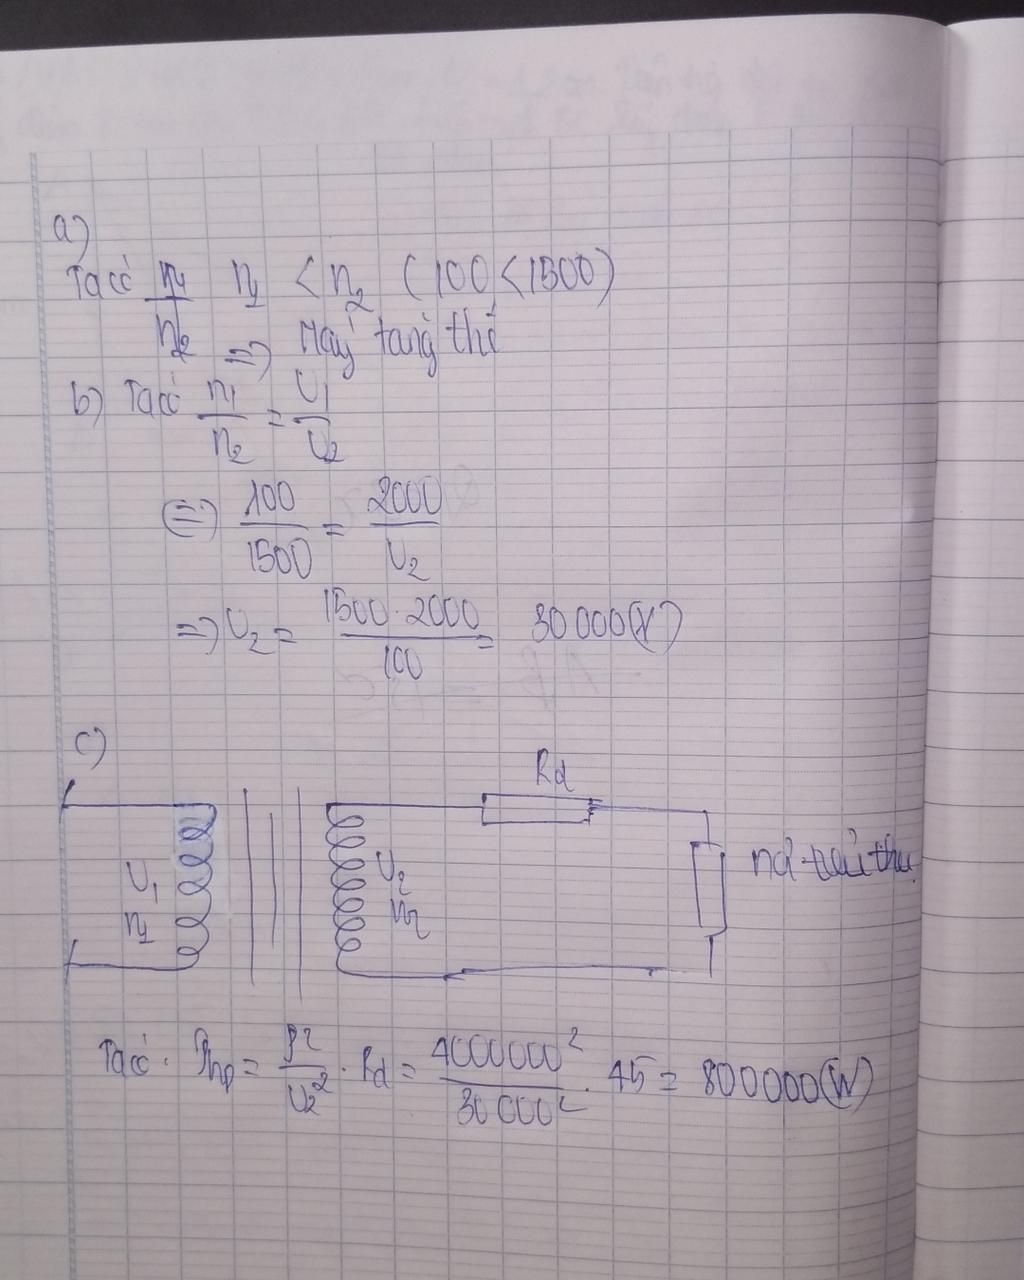 a)
Ta có n1/n2 n1 < n2 (100 < 1500)
=> Máy tăng thế
b) Ta có n1/n2 = U1/U2
<=> 100/1500 = 2000/U2
=> U2 = 1500.2000/100 = 30000(V)
c)
Rd
U1
n1
U2
n2
nơi tiêu thụ
Ta có: Php = P²/U2² . Rd = 4000000²/30000² . 45 = 800000(W)